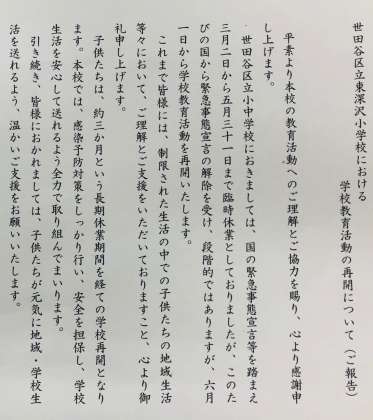 世田谷区立東深沢小学校における
学校教育活動の再開について（ご報告）
平素より本校の教育活動へのご理解とご協力を賜り、心より感謝申
し上げます。
世田谷区立小中学校におきましては、国の緊急事態宣言等を踏まえ
三月二日から五月三十一日まで臨時休業としておりましたが、このた
びの国から緊急事態宣言の解除を受け、段階的ではありますが、六月
一日から学校教育活動を再開いたします。
これまで皆様には、制限された生活の中での子供たちの地域生活
等々において、ご理解とご支援をいただいておりますこと、心より御
礼申し上げます。
子供たちは、約三か月という長期休業期間を経ての学校再開となり
ます。本校では、感染予防対策をしっかり行い、安全を担保し、学校
生活を安心して送れるよう全力で取り組んでまいります。
引き続き、皆様におかれましては、子供たちが元気に地域・学校生
活を送れるよう、温かいご支援をお願いいたします。